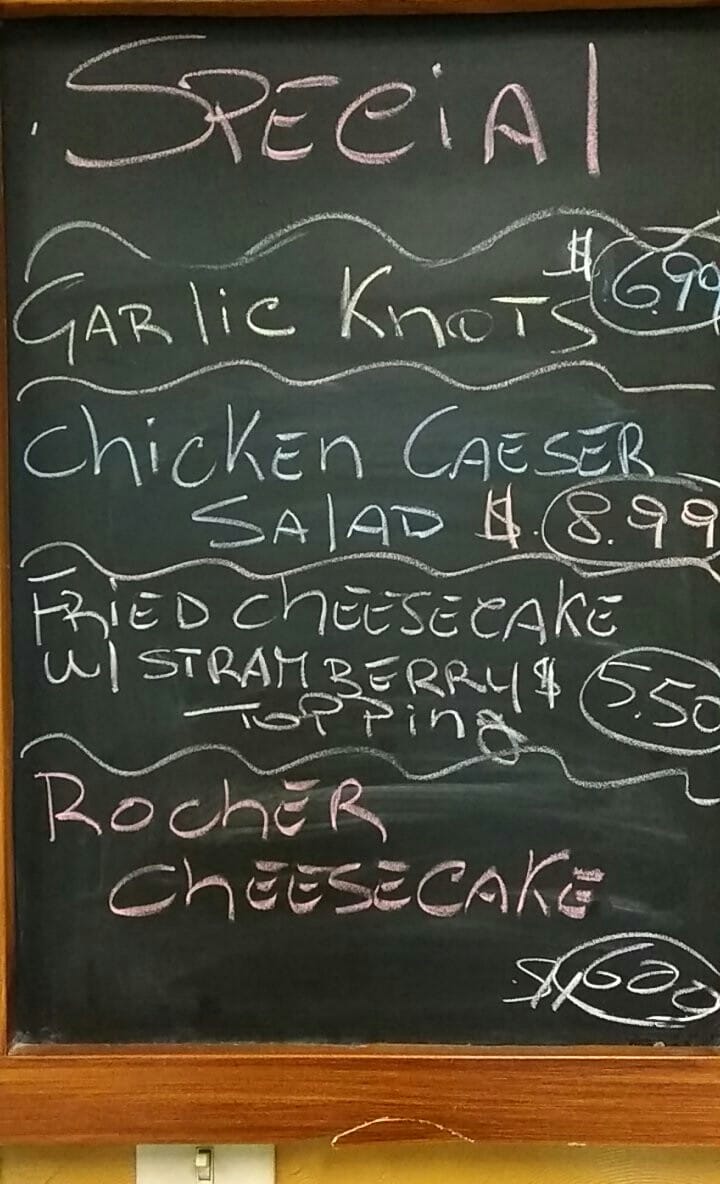 SPECiAl
GARlic KnOTS $ 6.99
ChicKEn CAESER
SAlAD $. 8.99
FRiED ChEESECAKE
W/ STRAWBERRY $ 5.50
TOPPing
RochER
ChEESECAKE
$600